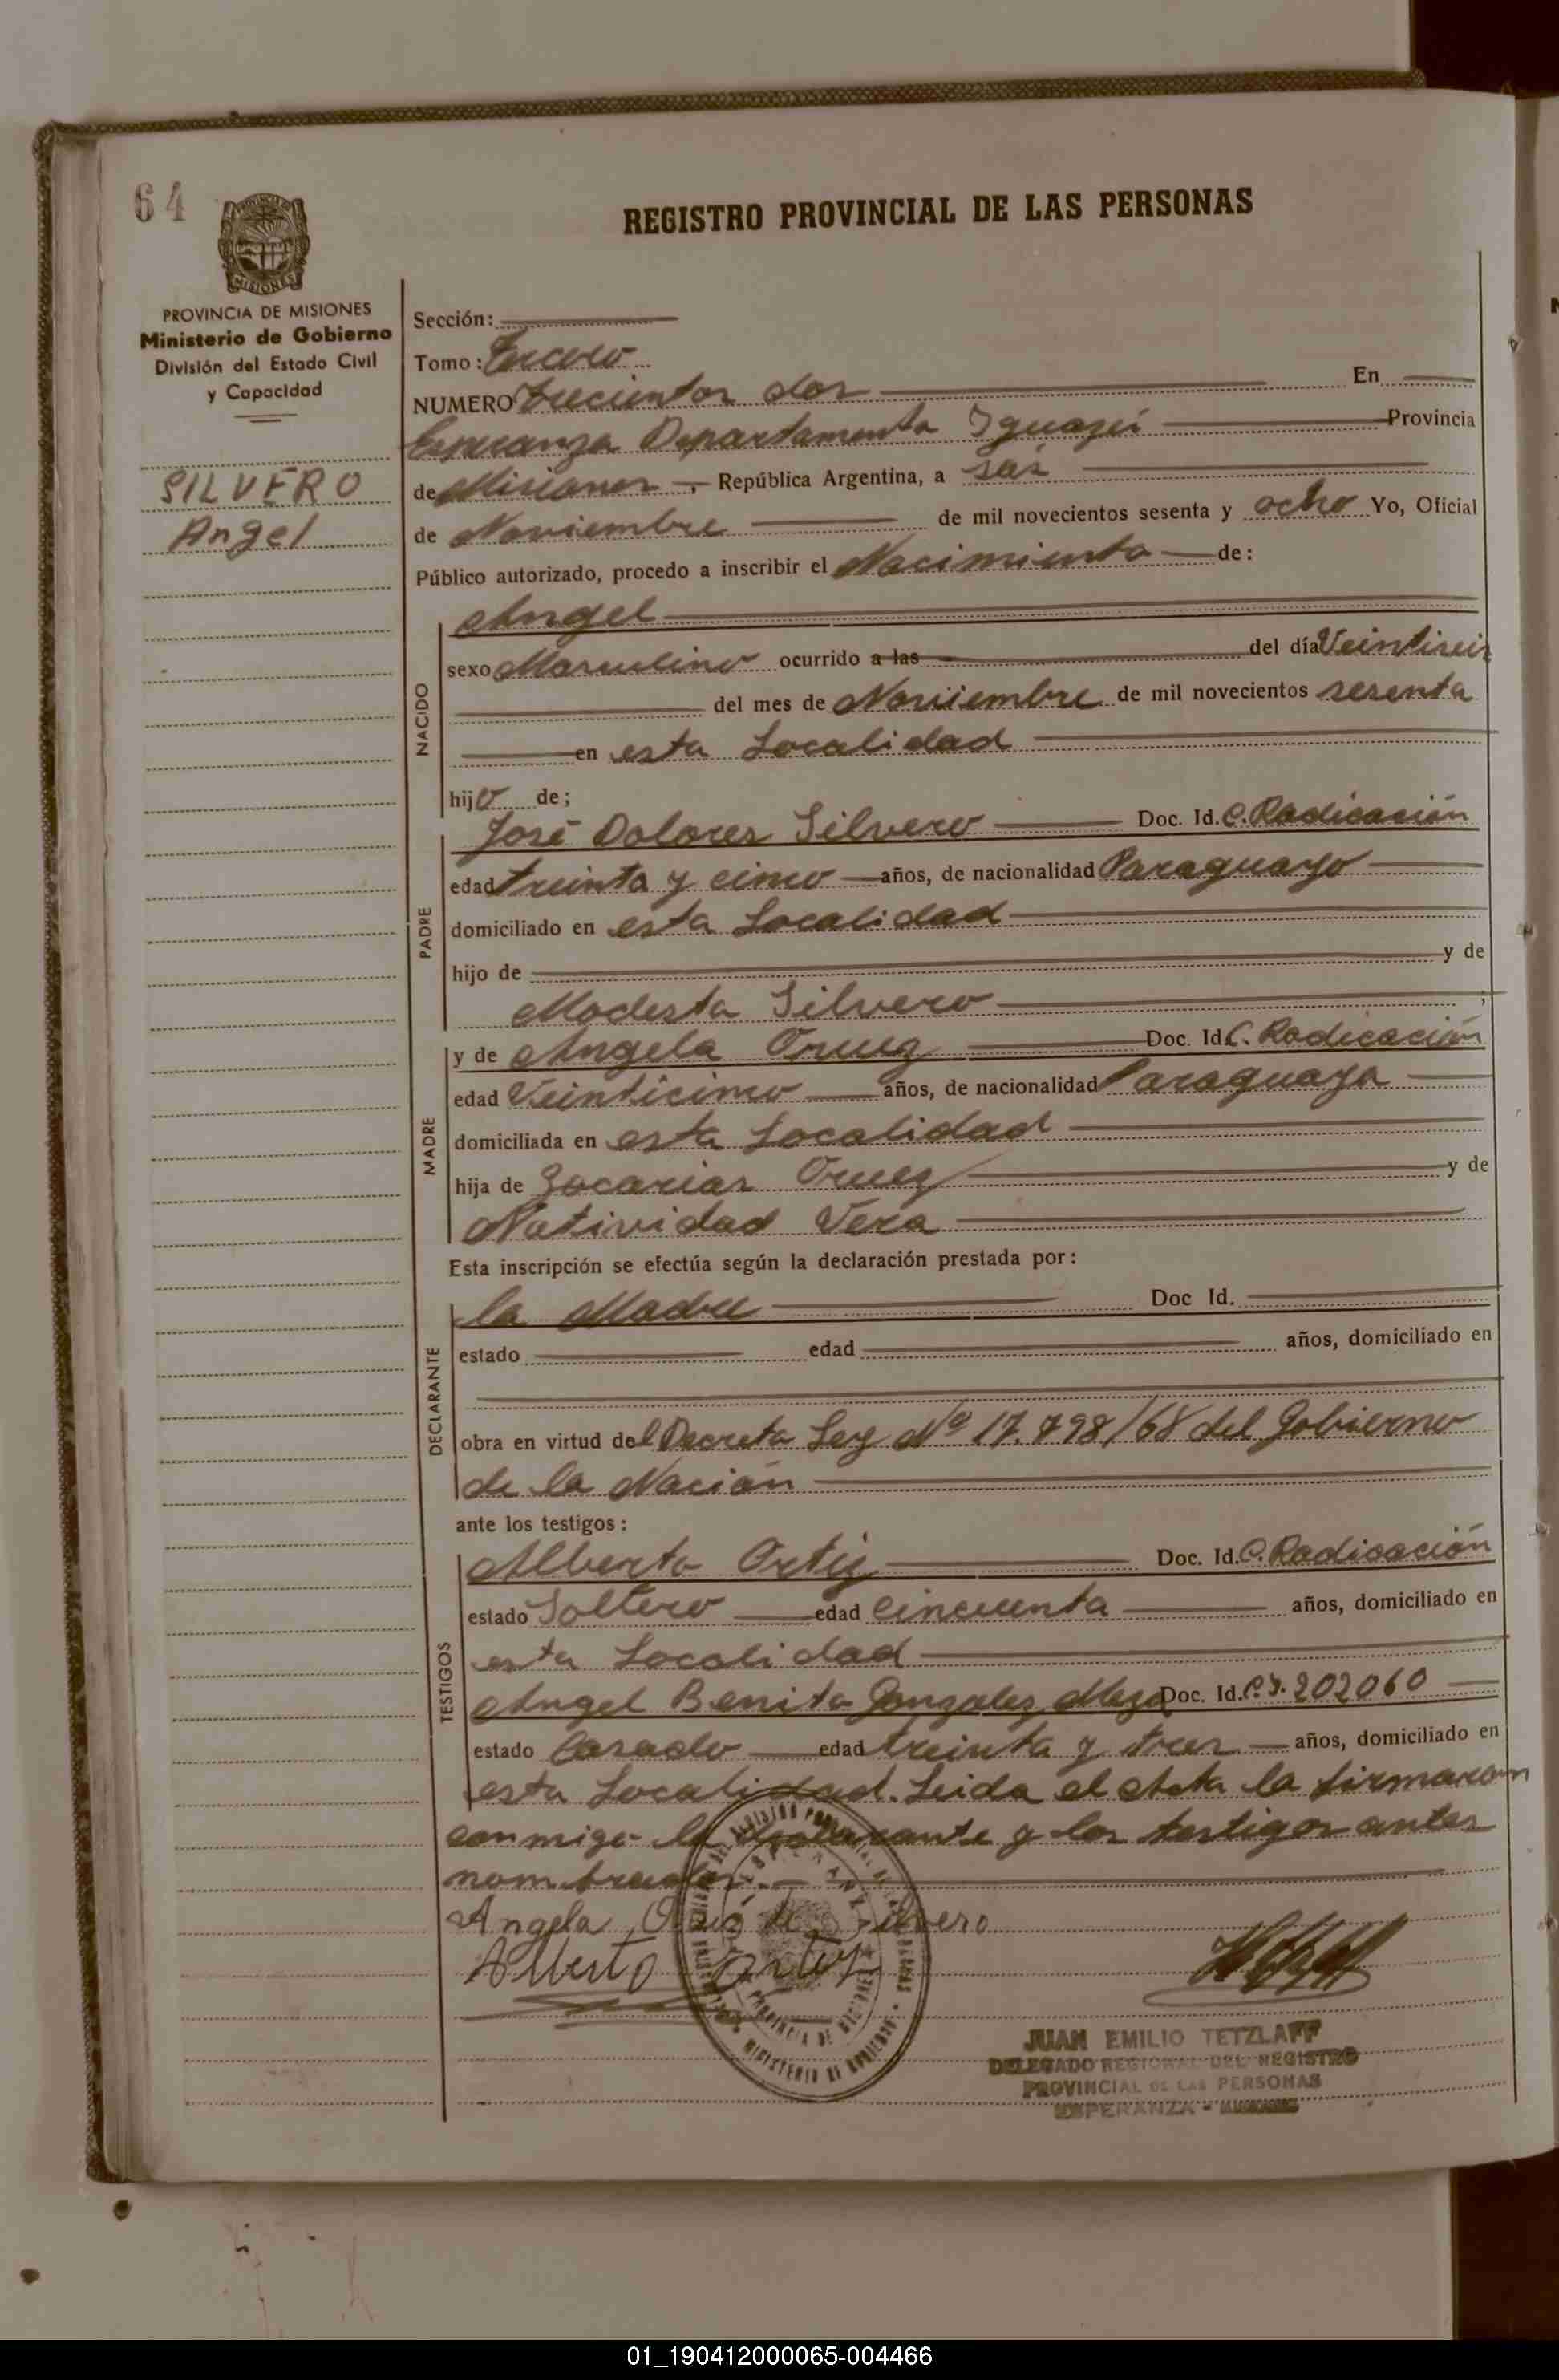 64
REGISTRO PROVINCIAL DE LAS PERSONAS
MISIONES
PROVINCIA DE MISIONES
Ministerio de Gobierno
División del Estado Civil
y Capacidad
SILVERO
Angel
Sección:
Tomo: Tercero
NUMERO Trecientos dos En
Esperanza Departamento Iguazú Provincia
de Misiones, República Argentina, a seis
de Noviembre de mil novecientos sesenta y ocho Yo, Oficial
Público autorizado, procedo a inscribir el Nacimiento de:
NACIDO
Angel
sexo Masculino ocurrido a las del día Veintiseis
del mes de Noviembre de mil novecientos sesenta
en esta Localidad
hijo de;
PADRE
José Dolores Silvero Doc. Id. C. Radicación
edad treinta y cinco años, de nacionalidad Paraguayo
domiciliado en esta Localidad
hijo de y de
Modesta Silvero ;
MADRE
y de Angela Oruez Doc. Id C. Radicación
edad Veinticinco años, de nacionalidad Paraguaya
domiciliada en esta Localidad
hija de Zacarias Oruez y de
Natividad Vera
Esta inscripción se efectúa según la declaración prestada por:
DECLARANTE
la Madre Doc Id.
estado edad años, domiciliado en
obra en virtud del Decreto Ley Nº 17.798/68 del Gobierno
de la Nación
ante los testigos:
TESTIGOS
Alberto Ortiz Doc. Id. C. Radicación
estado Soltero edad cincuenta años, domiciliado en
esta Localidad
Angel Benito Gonzalez Meza Doc. Id. C.I. 202060
estado Casado edad treinta y tres años, domiciliado en
esta Localidad. Leida el Acta la firmaron
conmigo la declarante y los testigos antes
nombrados.
Angela de Silvero
Alberto Ortiz
PROVINCIA DE MISIONES
MINISTERIO DE GOBIERNO
JUAN EMILIO TETZLAFF
DELEGADO REGIONAL DEL REGISTRO
PROVINCIAL DE LAS PERSONAS
ESPERANZA - MISIONES
01_190412000065-004466